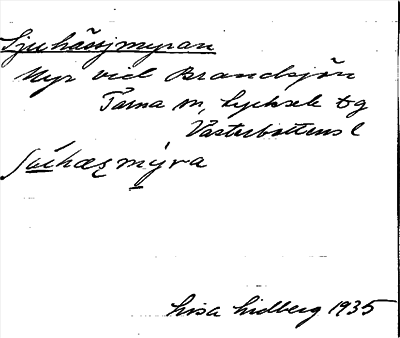 Sjuhässjmyran
Myr vid Brandsjön
Tärna sn, Lycksele tg
Västerbottens l
mýra
Lisa Lidberg 1935